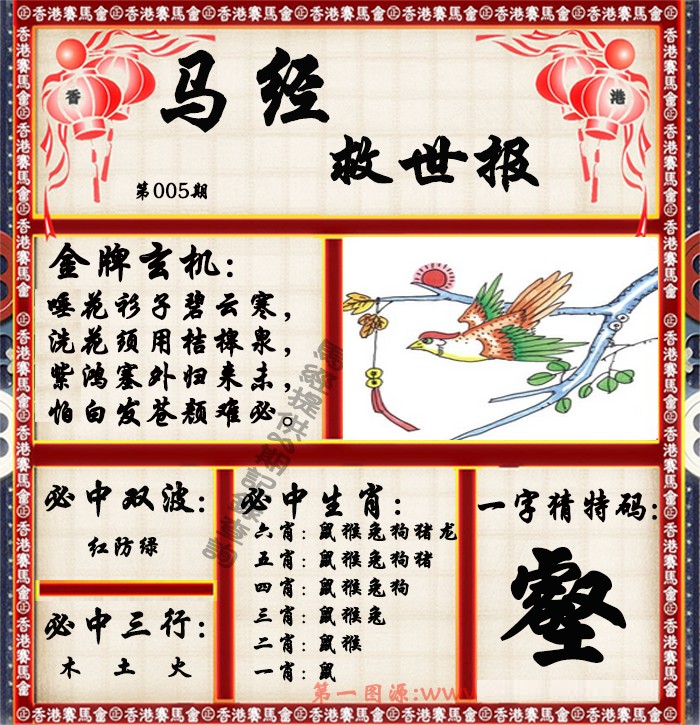 香港賽馬會
香
港
马经
救世报
第005期
金牌玄机：
唾花衫子碧云寒，
洗花须用桔槔泉，
紫鸿塞外归来未，
怕白发苍颓难必。
必中双波：
红防绿
必中三行：
木 土 火
必中生肖：
六肖：鼠猴兔狗猪龙
五肖：鼠猴兔狗猪
四肖：鼠猴兔狗
三肖：鼠猴兔
二肖：鼠猴
一肖：鼠
一字猜特码：
壑
第一图源:www.